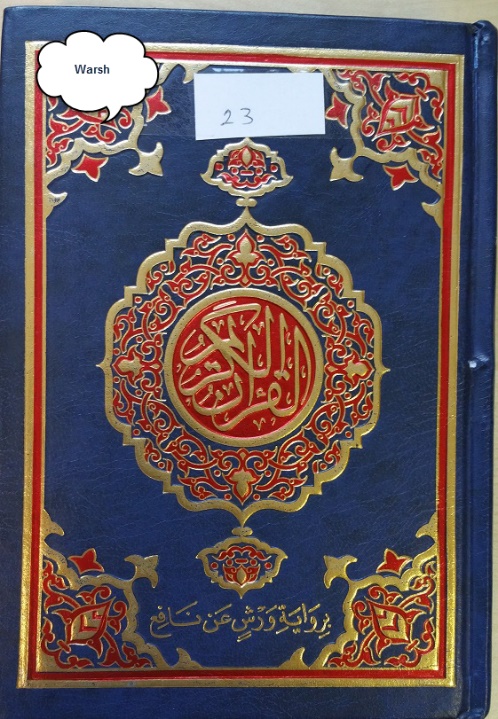 Warsh
23
القرآن الكريم
بِرِوَايَةِ وَرْشٍ عَن نَافِع